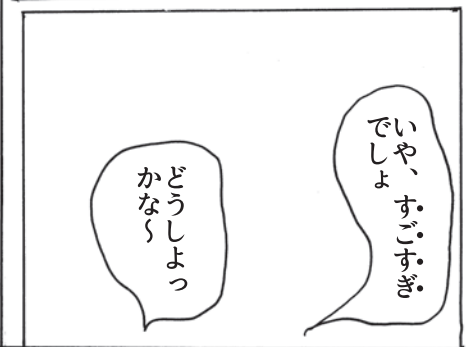 いや、すごすぎ
でしょ
どうしよっ
かな〜